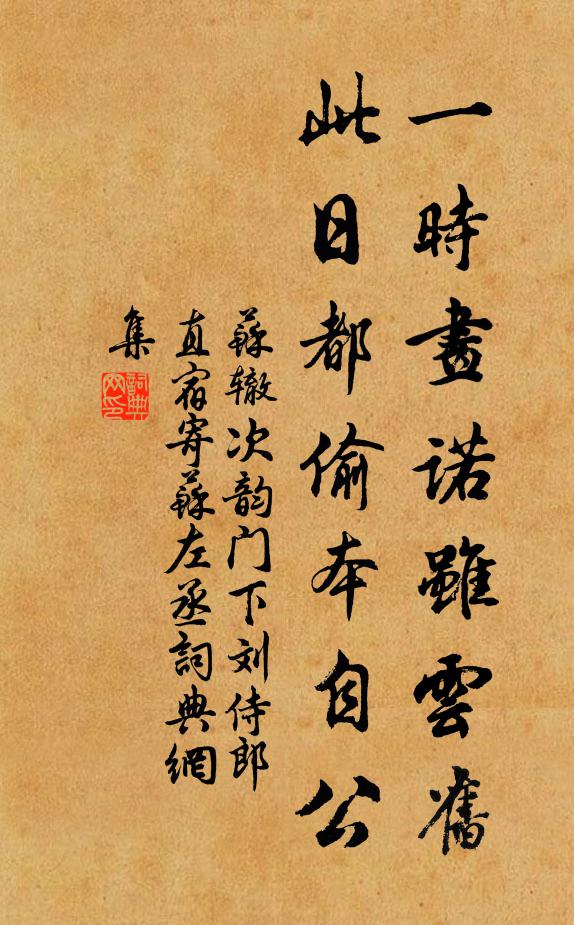 一時畫諾雖雲舊
此日都偷本自公
蘇辙次韵门下刘侍郎
直宿寄蘇左丞詞典網
集
詞典网印